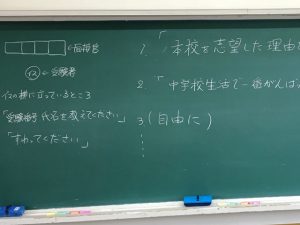 ←面接官
イス
←受験者
イスの横に立っているところ
「受験番号 氏名を教えてください」
「すわってください」
1. 「本校を志望した理由を
2. 「中学校生活で一番がんばっ
3 (自由に)